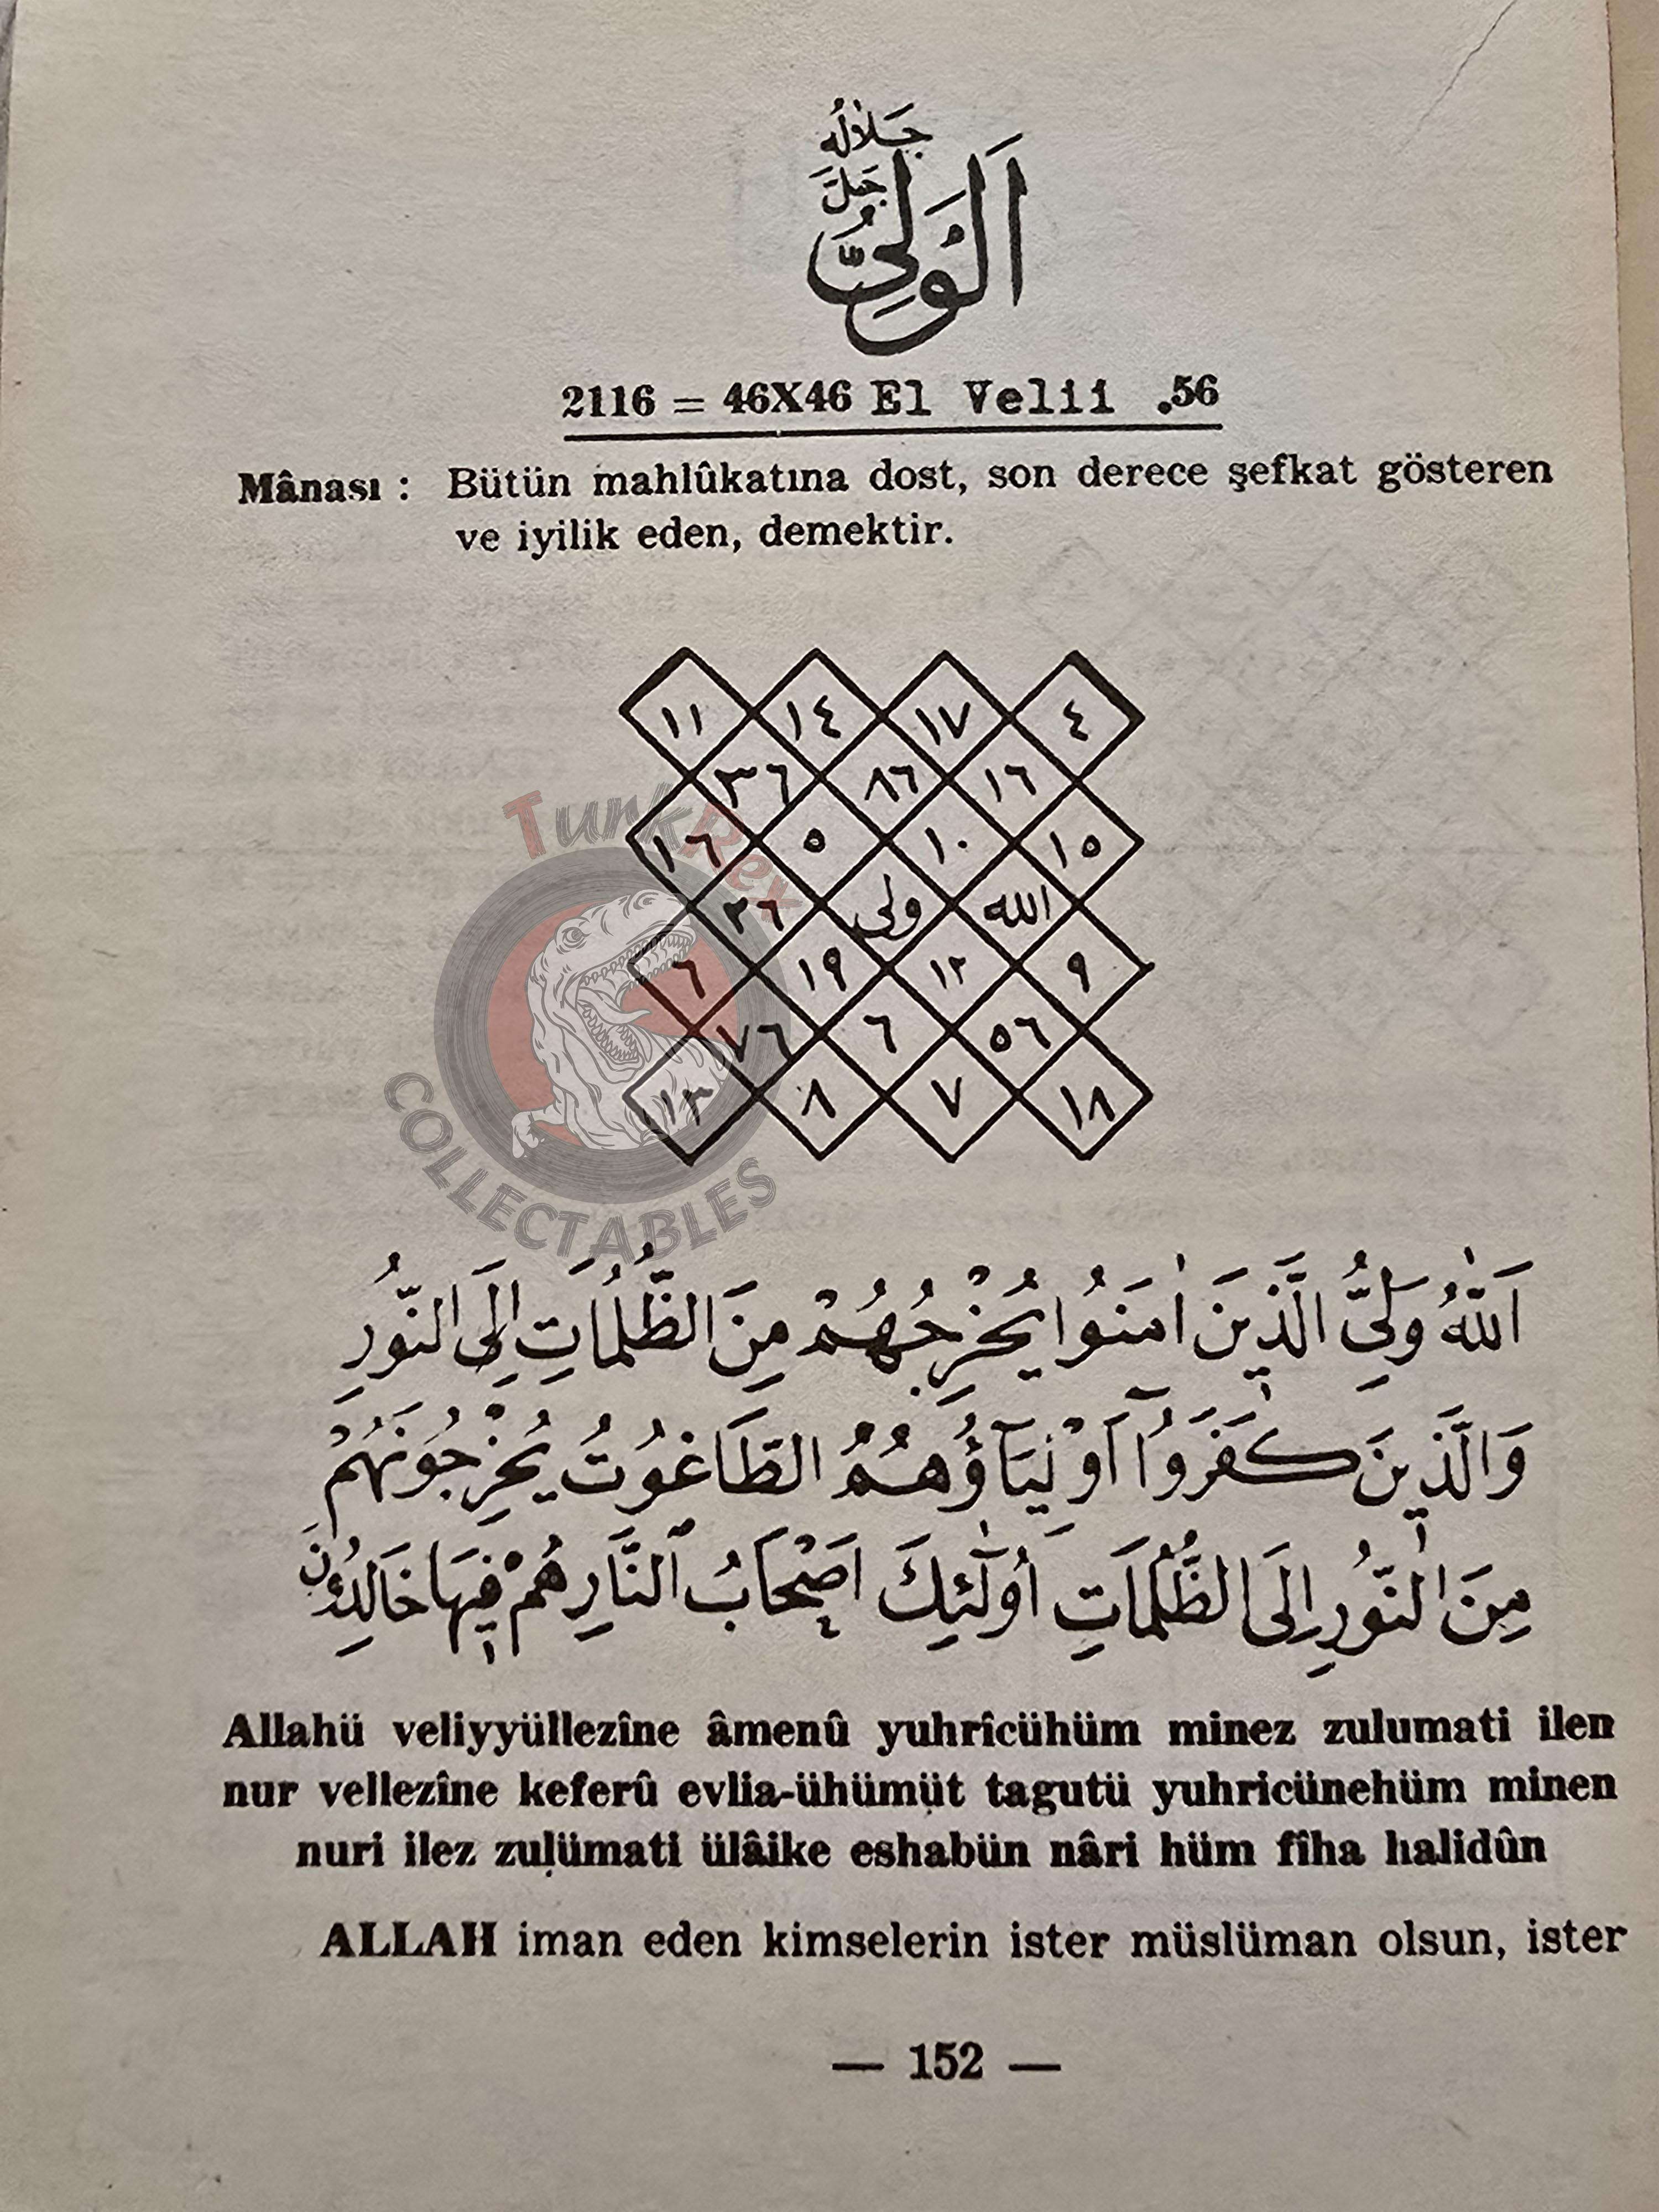 جَلَّ جَلَالُهُ
اَلْوَلِيُّ
2116 = 46X46 El Velii .56
Mânası : Bütün mahlûkatına dost, son derece şefkat gösteren
ve iyilik eden, demektir.
١١ ١٤ ١٧ ٤
٣٦ ٨٦ ١٦
١٦ ٥ ١٠ ١٥
٢٦ ولى الله
٦ ١٩ ١٢ ٩
٧٦ ٦ ٥٦
١٣ ٨ ٧ ١٨
TurkRex
COLLECTABLES
اَللّٰهُ وَلِيُّ الَّذ۪ينَ اٰمَنُوا يُخْرِجُهُمْ مِنَ الظُّلُمَاتِ اِلَى النُّورِ
وَالَّذ۪ينَ كَفَرُٓوا اَوْلِيَٓاؤُ۬هُمُ الطَّاغُوتُ يُخْرِجُونَهُمْ
مِنَ النُّورِ اِلَى الظُّلُمَاتِ اُو۬لٰٓئِكَ اَصْحَابُ النَّارِ هُمْ ف۪يهَا خَالِدُونَ
Allahü veliyyüllezîne âmenû yuhrîcühüm minez zulumati ilen
nur vellezîne keferû evlia-ühümüt tagutü yuhricünehüm minen
nuri ilez zulümati ülâike eshabün nâri hüm fîha halidûn
ALLAH iman eden kimselerin ister müslüman olsun, ister
— 152 —